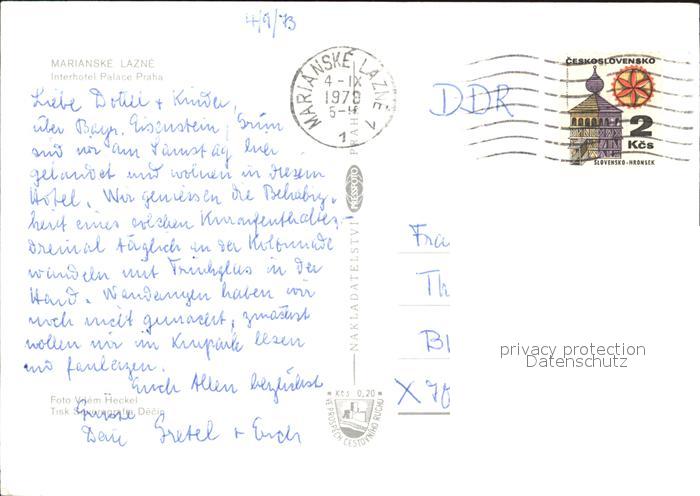 4/9/73
MARIANSKÉ LAZNĚ
Interhotel Palace Praha
Liebe + Kinder,
über Bayr. Eisenstein,
sind wir am Samstag hier
gelandet und wohnen in diesem
Hotel. Wir geniessen die Behabig-
keit eines solchen Kuraufenthaltes -
Dreimal täglich an der Kolonnade
wandeln mit Trinkglas in der
Hand. Wanderungen haben wir
noch nicht gemacht, zunächst
wollen wir im Kurpark lesen
und faulenzen.
Euch Allen herzlichst
Foto Vilém Heckel
Grüsse
Tisk Děčín
Gretel + Erich
MARIÁNSKÉ LÁZNĚ 1
4-IX
1973
1
PRAHA
PRESSFOTO
NAKLADATELSTVÍ
Kčs 0,20
VE PROSPĚCH CESTOVNÍHO RUCHU
DDR
ČESKOSLOVENSKO
2
Kčs
SLOVENSKO-HRONSEK
Fra
Th
Bl
X 70
privacy protection
Datenschutz